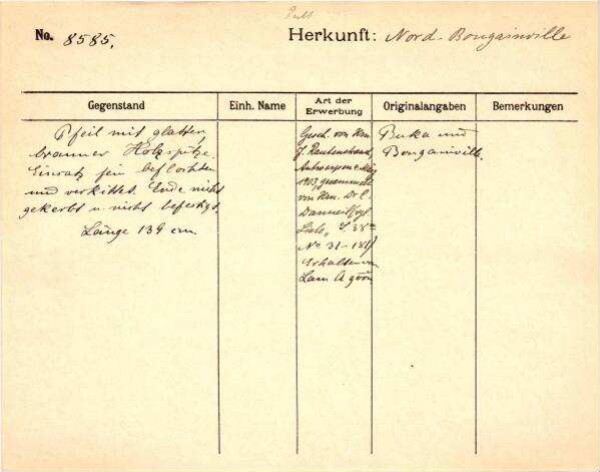 No. 8585.
Herkunft: Nord-Bougainville
Gegenstand
Einh. Name
Art der Erwerbung
Originalangaben
Bemerkungen
Pfeil mit glatter,
brauner Holzspitze.
Einsatz fein beflochten
und verkittet. Ende nicht
gekerbt u. nicht befestigt.
Länge 139 cm.
Gesch. von Hrn.
J.
Antwerpen
1903, gesammelt
von Hrn. Dr.
No 31-
Erhalten von
Buka und
Bougainville.